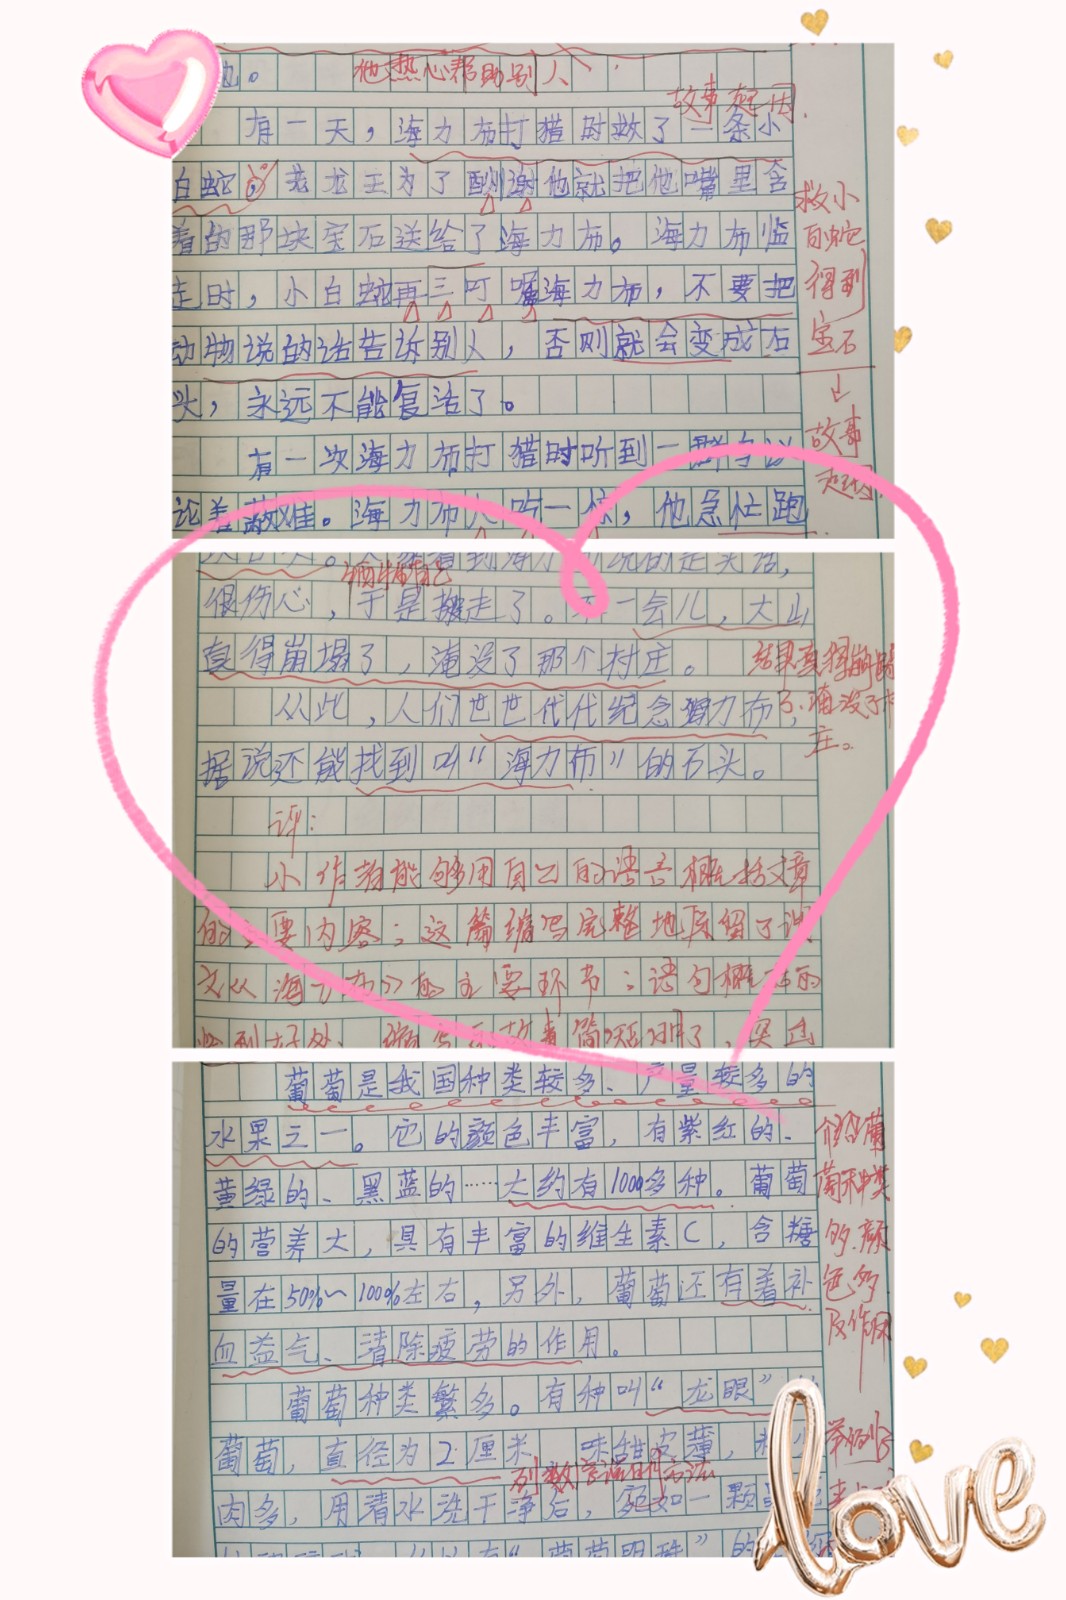 他热心帮助别人
故事起因
有一天，海力布打猎时救了一条小
白蛇。老龙王为了酬谢他就把他嘴里含
着的那块宝石送给了海力布。海力布临
走时，小白蛇再三叮嘱海力布，不要把
动物说的话告诉别人，否则就会变成石
头，永远不能复活了。
有一次海力布打猎时听到一群鸟议
论着避难。海力布大吃一惊，他急忙跑
救小
白蛇
得到
宝石
故事
起因
牺牲自己
很伤心，于是搬走了。不一会儿，大山
真得崩塌了，淹没了那个村庄。
从此，人们世世代代纪念海力布，
据说还能找到叫“海力布”的石头。
结果真得崩塌
了，淹没了村
庄。
评：
小作者能够用自己的语言概括文章
的主要内容；这篇缩写完整地保留了课
文《海力布》的主要环节；语句概括的
恰到好处，缩写后故事简短明了，突出
葡萄是我国种类较多、产量较多的
水果之一。它的颜色丰富，有紫红的、
黄绿的、黑蓝的……大约有1000多种。葡萄
的营养大，具有丰富的维生素C，含糖
量在50%~100%左右，另外，葡萄还有着补
血益气、清除疲劳的作用。
葡萄种类繁多。有种叫“龙眼”
葡萄，直径为2厘米，味甜皮薄，
列数字说明方法
肉多，用清水洗干净后，宛如一颗
有“葡萄明珠”的
介绍葡
萄种类
多.颜
色多
及作用
love